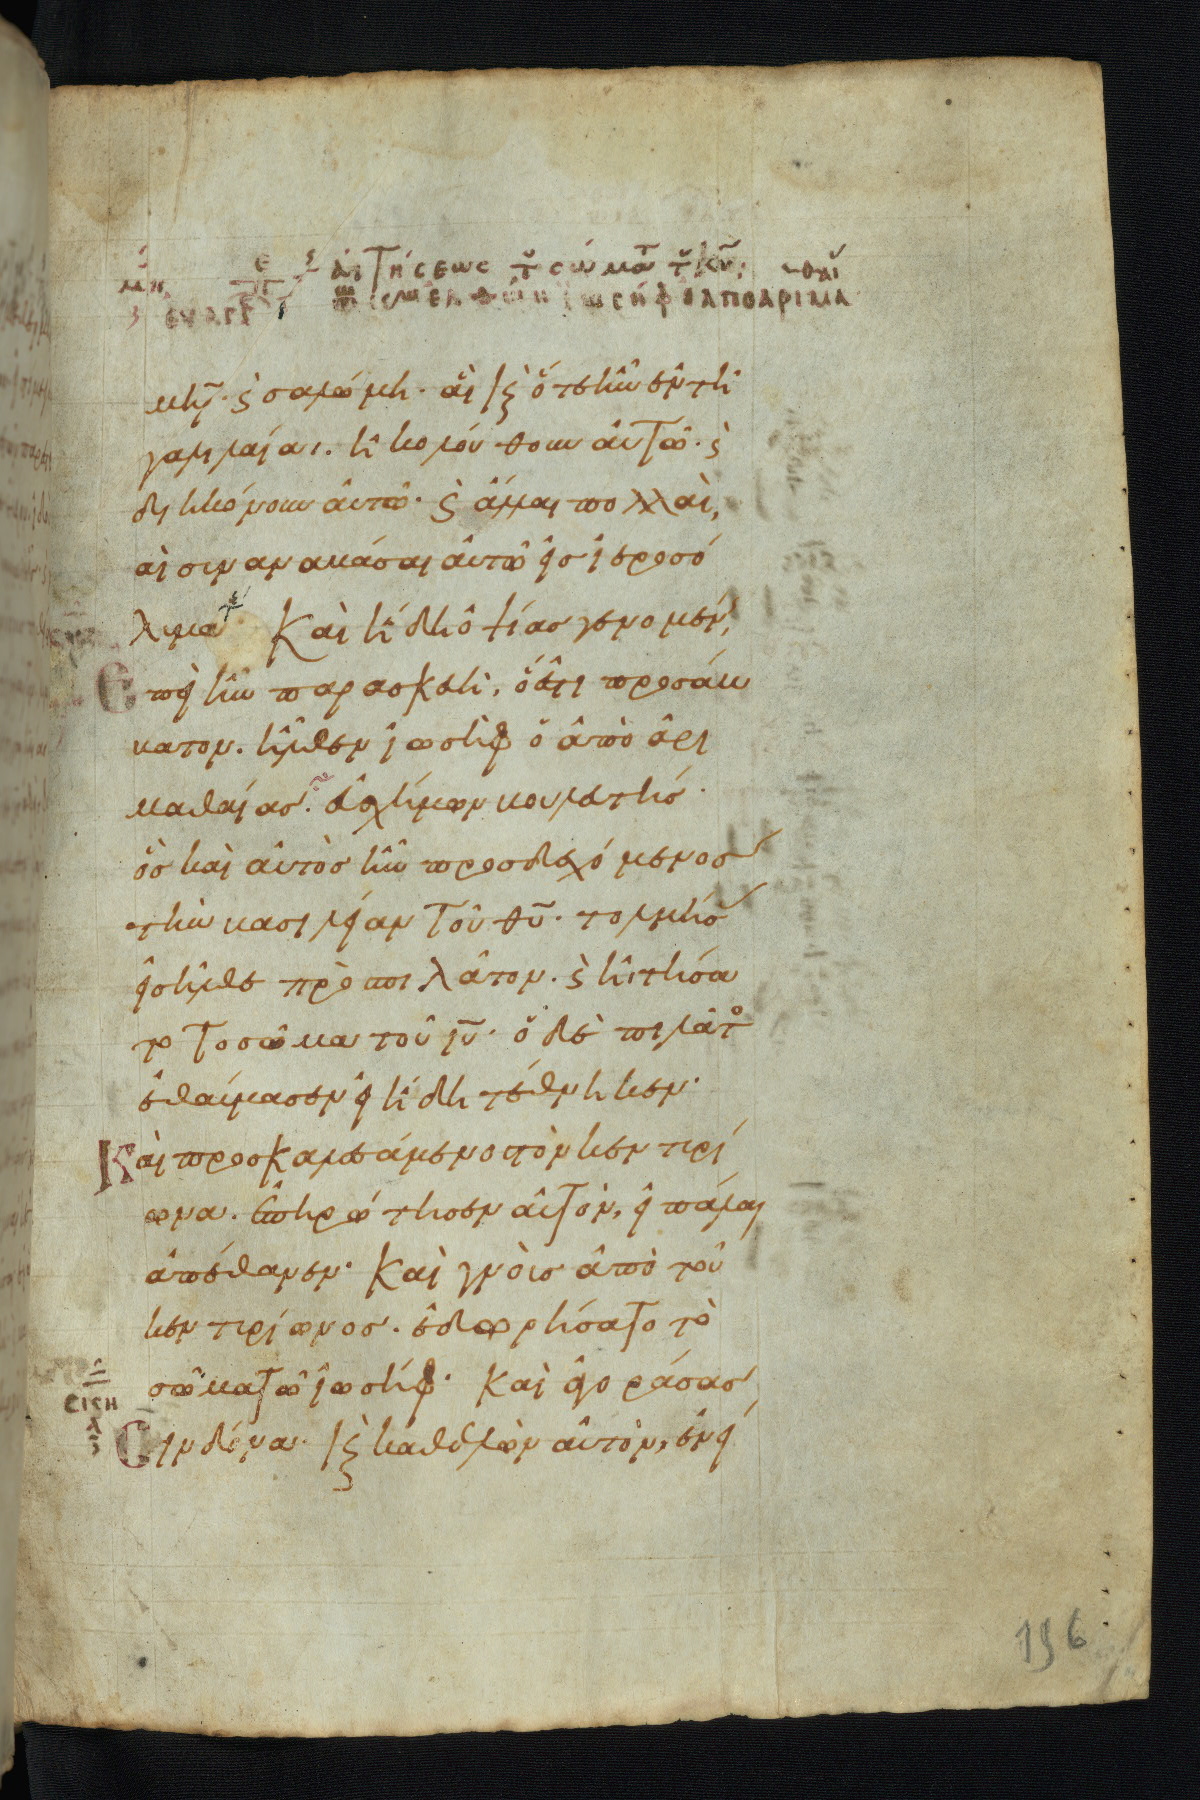 αἰτήσεως τοῦ σώματ τοῦ κῡ·
ἦλθεν ἰωσὴφ ὁ ἀπὸ ἀριμα
μήτηρ· ϗ σαλώμη· αἳ ϗ ὅτε ἦν ἐν τῆ
γαλιλαία· ἠκολούθουν αὐτῶ· ϗ
διηκόνουν αὐτῶ· ϗ ἄλλαι πολλαὶ,
αἱ συναναβάσαι αὐτῶ εἰς ἱεροσό
λυμα· Καὶ ἤδη ὀψίας γενομένης,
Ἐπεὶ ἦν παρασκευὴ, ὅ ἐστι προσάβ
βατον· ἦλθεν ἰωσὴφ ὁ ἀπὸ ἀρι
μαθαίας· εὐσχήμων βουλευτής·
ὃς καὶ αὐτὸς ἦν προσδεχόμενος
τὴν βασιλείαν τοῦ θῡ· τολμήσας
εἰσῆλθε πρὸς πιλάτον· ϗ ἠτήσα
το τὸ σῶμα τοῦ ιῡ· ὁ δὲ πιλάτος
ἐθαύμασεν εἰ ἤδη τέθνηκεν·
Καὶ προσκαλεσάμενος τὸν κεντυρί
ωνα· ἐπηρώτησεν αὐτὸν, εἰ πάλαι
ἀπέθανεν· Καὶ γνοὺς ἀπὸ τοῦ
κεντυρίωνος· ἐδωρήσατο τὸ
σῶμα τῶ ἰωσήφ· Καὶ ἀγοράσας
Σινδόνα· ϗ καθελὼν αὐτὸν, ἐνεί
196